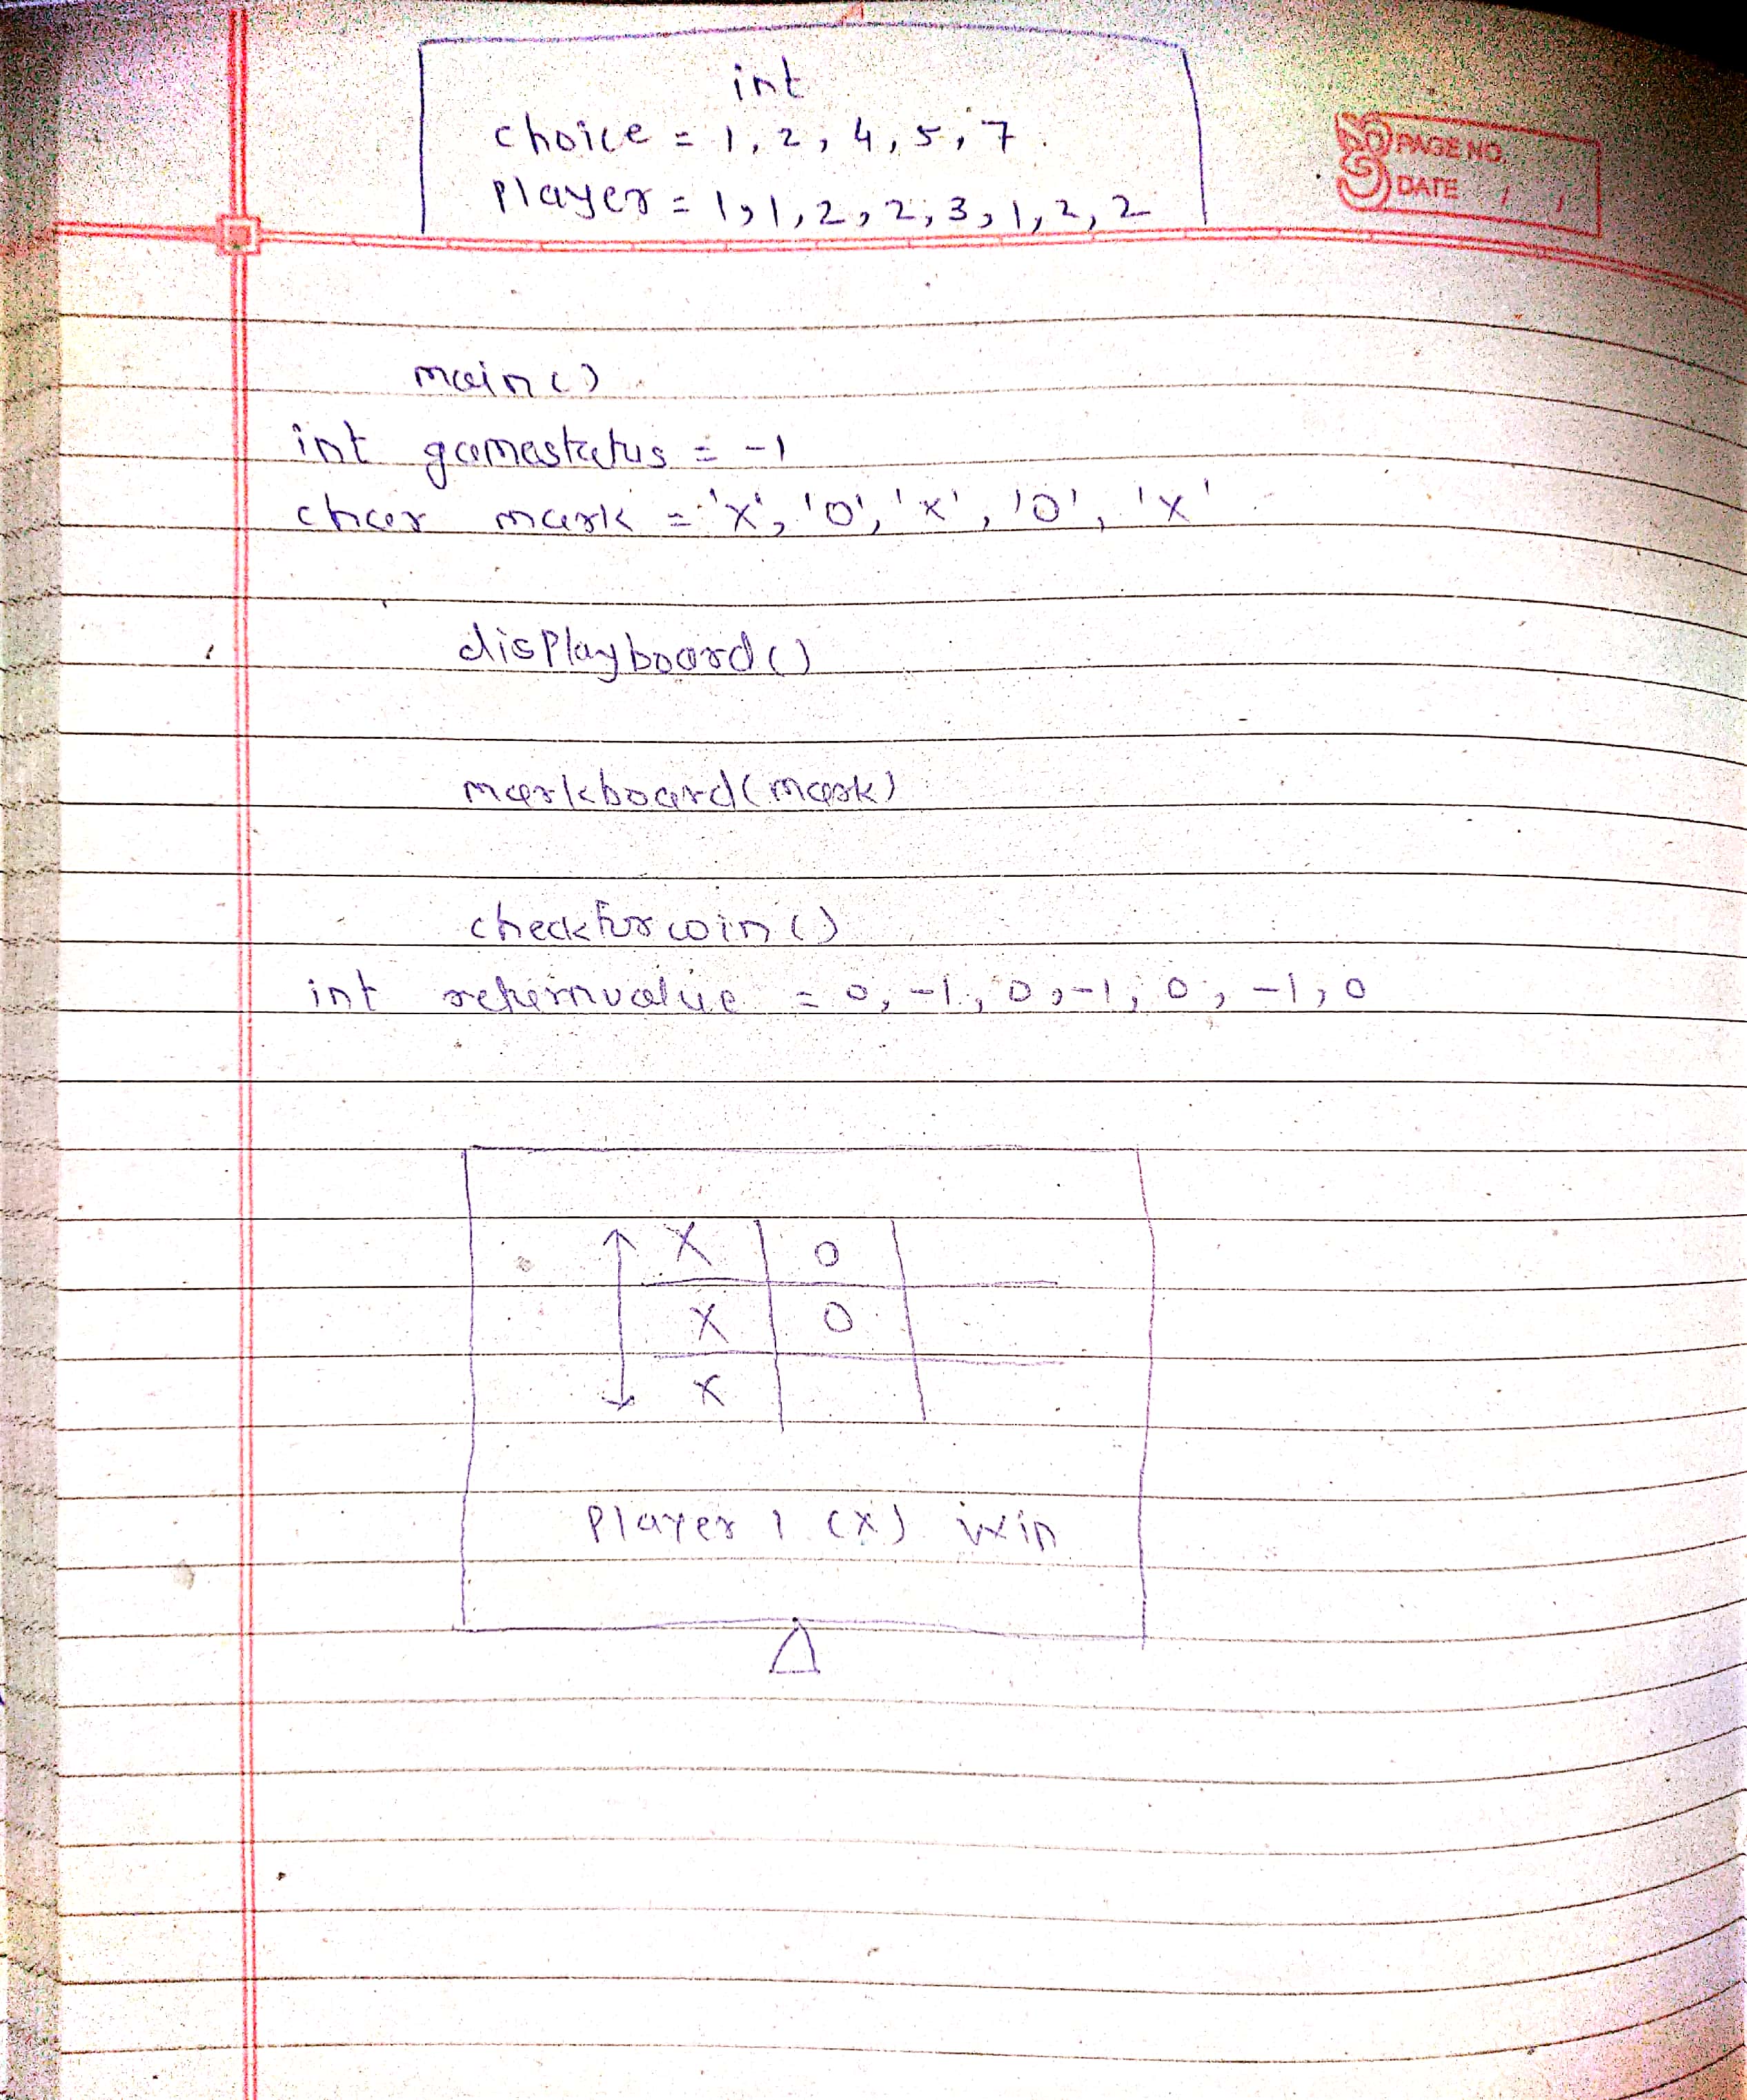 int
choice = 1, 2, 4, 5, 7
Player = 1, 1, 2, 2, 3, 1, 2, 2
PAGE NO.
DATE / /
main()
int gamestatus = -1
char mark = 'X', 'O', 'X', 'O', 'X'
displayboard()
markboard(mark)
checkforwin()
int returnvalue = 0, -1, 0, -1, 0, -1, 0
X O
X O
X
Player 1 (X) win